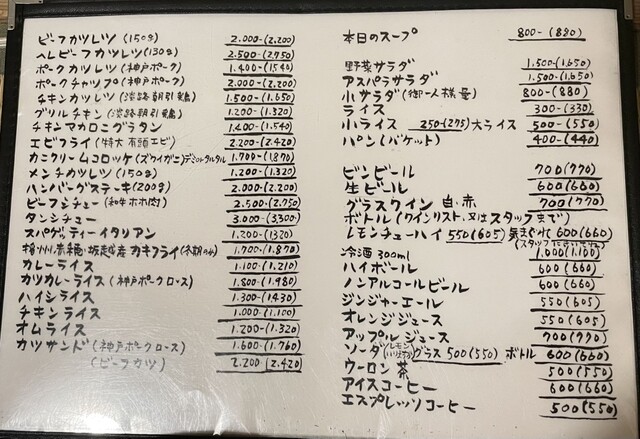 ビーフカツレツ (150g) 2.000-(2.200)
ヘレビーフカツレツ(130g) 2.500-(2.750)
ポークカツレツ (神戸ポーク) 1.400-(1.540)
ポークチャップ (神戸ポーク) 2.000-(2.200)
チキンカツレツ (淡路朝引鶏) 1.500-(1.650)
グリルチキン (淡路朝引鶏) 1.200-(1.320)
チキンマカロニグラタン 1.400-(1.540)
エビフライ (特大 有頭エビ) 2.200-(2.420)
カニクリームコロッケ (ズワイガニ) 1.700-(1.870)
メンチカツレツ (150g) 1.200-(1.320)
ハンバーグステーキ(200g) 2.000-(2.200)
ビーフシチュー (和牛ホホ肉) 2.500-(2.750)
タンシチュー 3.000-(3.300)
スパゲッティーイタリアン 1.200-(1320)
播州赤穂・坂越産カキフライ(冬期のみ) 1.700-(1.870)
カレーライス 1.100-(1.210)
カツカレーライス (神戸ポークロース) 1.800-(1.980)
ハイシライス 1.300-(1.430)
チキンライス 1.000-(1.100)
オムライス 1.200-(1.320)
カツサンド (神戸ポークロース) 1.600-(1.760)
(ビーフカツ) 2.200-(2.420)
本日のスープ 800-(880)
野菜サラダ 1.500-(1.650)
アスパラサラダ 1.500-(1.650)
小サラダ (御一人様量) 800-(880)
ライス 300-(330)
小ライス 250-(275) 大ライス 500-(550)
パン (バケット) 400-(440)
ビンビール 700(770)
生ビール 600(660)
グラスワイン 白・赤 700(770)
ボトル (ワインリスト、又はスタッフまで)
レモンチューハイ 550(605) 気まぐれ 600(660)
(スタッフにきいてネ)
冷酒 300ml 1.000(1.100)
ハイボール 600(660)
ノンアルコールビール 600(660)
ジンジャーエール 550(605)
オレンジジュース 550(605)
アップルジュース 700(770)
ソーダ グラス 500(550) ボトル 600(660)
ウーロン茶 500(550)
アイスコーヒー 600(660)
エスプレッソコーヒー 500(550)